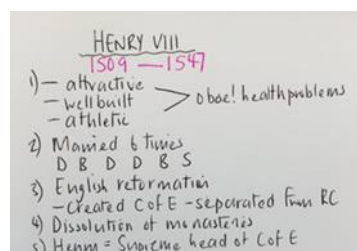 HENRY VIII
1509 — 1547
1) - attractive
- well built
- athletic
> obese! health problems
2) Married 6 times
D B D D B S
3) English reformation
- Created C of E - separated from RC
4) Dissolution of monasteries
5) Henry = Supreme head of C of E